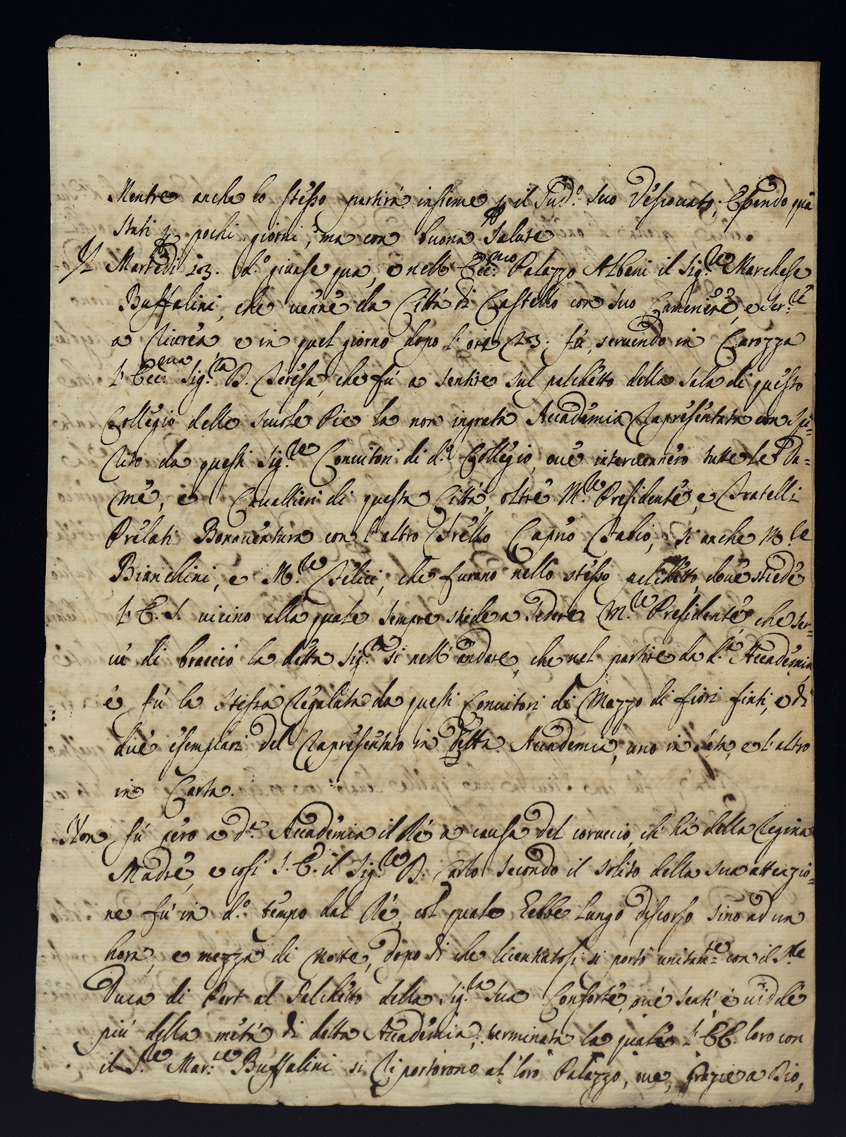 Mentre anche lo stesso partirà insieme p il Sud.º suo Desiparato; Essendo quà
stati p pochi giorni, ma con buona Salute
Martedì 23. d.º giunse quà, e nell' Ecc.mo Palazzo Albani il Sig.re Marchese
Buffalini, che venne da Città di Castello con suo Cameriere, e Ser.re
a Livrea e in quel giorno dopo l'ore 23. fù, servendo in Carozza
l'Ecc.ma Sig.ra D. Teresa, che fù a sentire sul palchetto della sala di questo
Collegio delle scuole Pie la non ingrata Accademia Rapresentata con Spi-
rito da questi Sig.ri Convitori di d.º Collegio, ove intervennero tutte le Da-
me, e Cavallieri di questa Città, oltre M.re Presidente, e Fratelli
Prelati Bonaventura con l'altro Frello Caprio Fabio, si anche M.re
Bianchini, e M.re Felici, che furono nello stesso palchetto, dove stiede
l'E. S. vicino alla quale sempre stiede a sedere M.re Presidente che ser-
vì di braccio la detta Sig.ra si nell'andare, che nel partire da d.ª Accademia
e fù la stessa regalata da questi Convitori di Mazzo di fiori finti, e di
due esemplari del Rapresentato in detta Accademia, uno in seta, e l'altro
in Carta.
Non fù però a d.ª Accademia il Rè a causa del coruccio, ch' hà della Regina
Madre, e così S. E. il Sig.re D. Carlo secondo il solito della sua attenzio-
ne fù in d.º tempo dal Rè, col quale Ebbe lungo discorso sino ad un
hora, e mezza di Notte, dopo di che licentiatosi si portò unitam.te con il S.re
Duca di Pert al Palchetto della Sig.ra sua Consorte, ove sentì, e vidde
più della metà di detta Accademia, terminata la quale l'EE. loro con
il S.re Mar.se Buffalini si riportorono al loro Palazzo, ove, grazie a Dio,